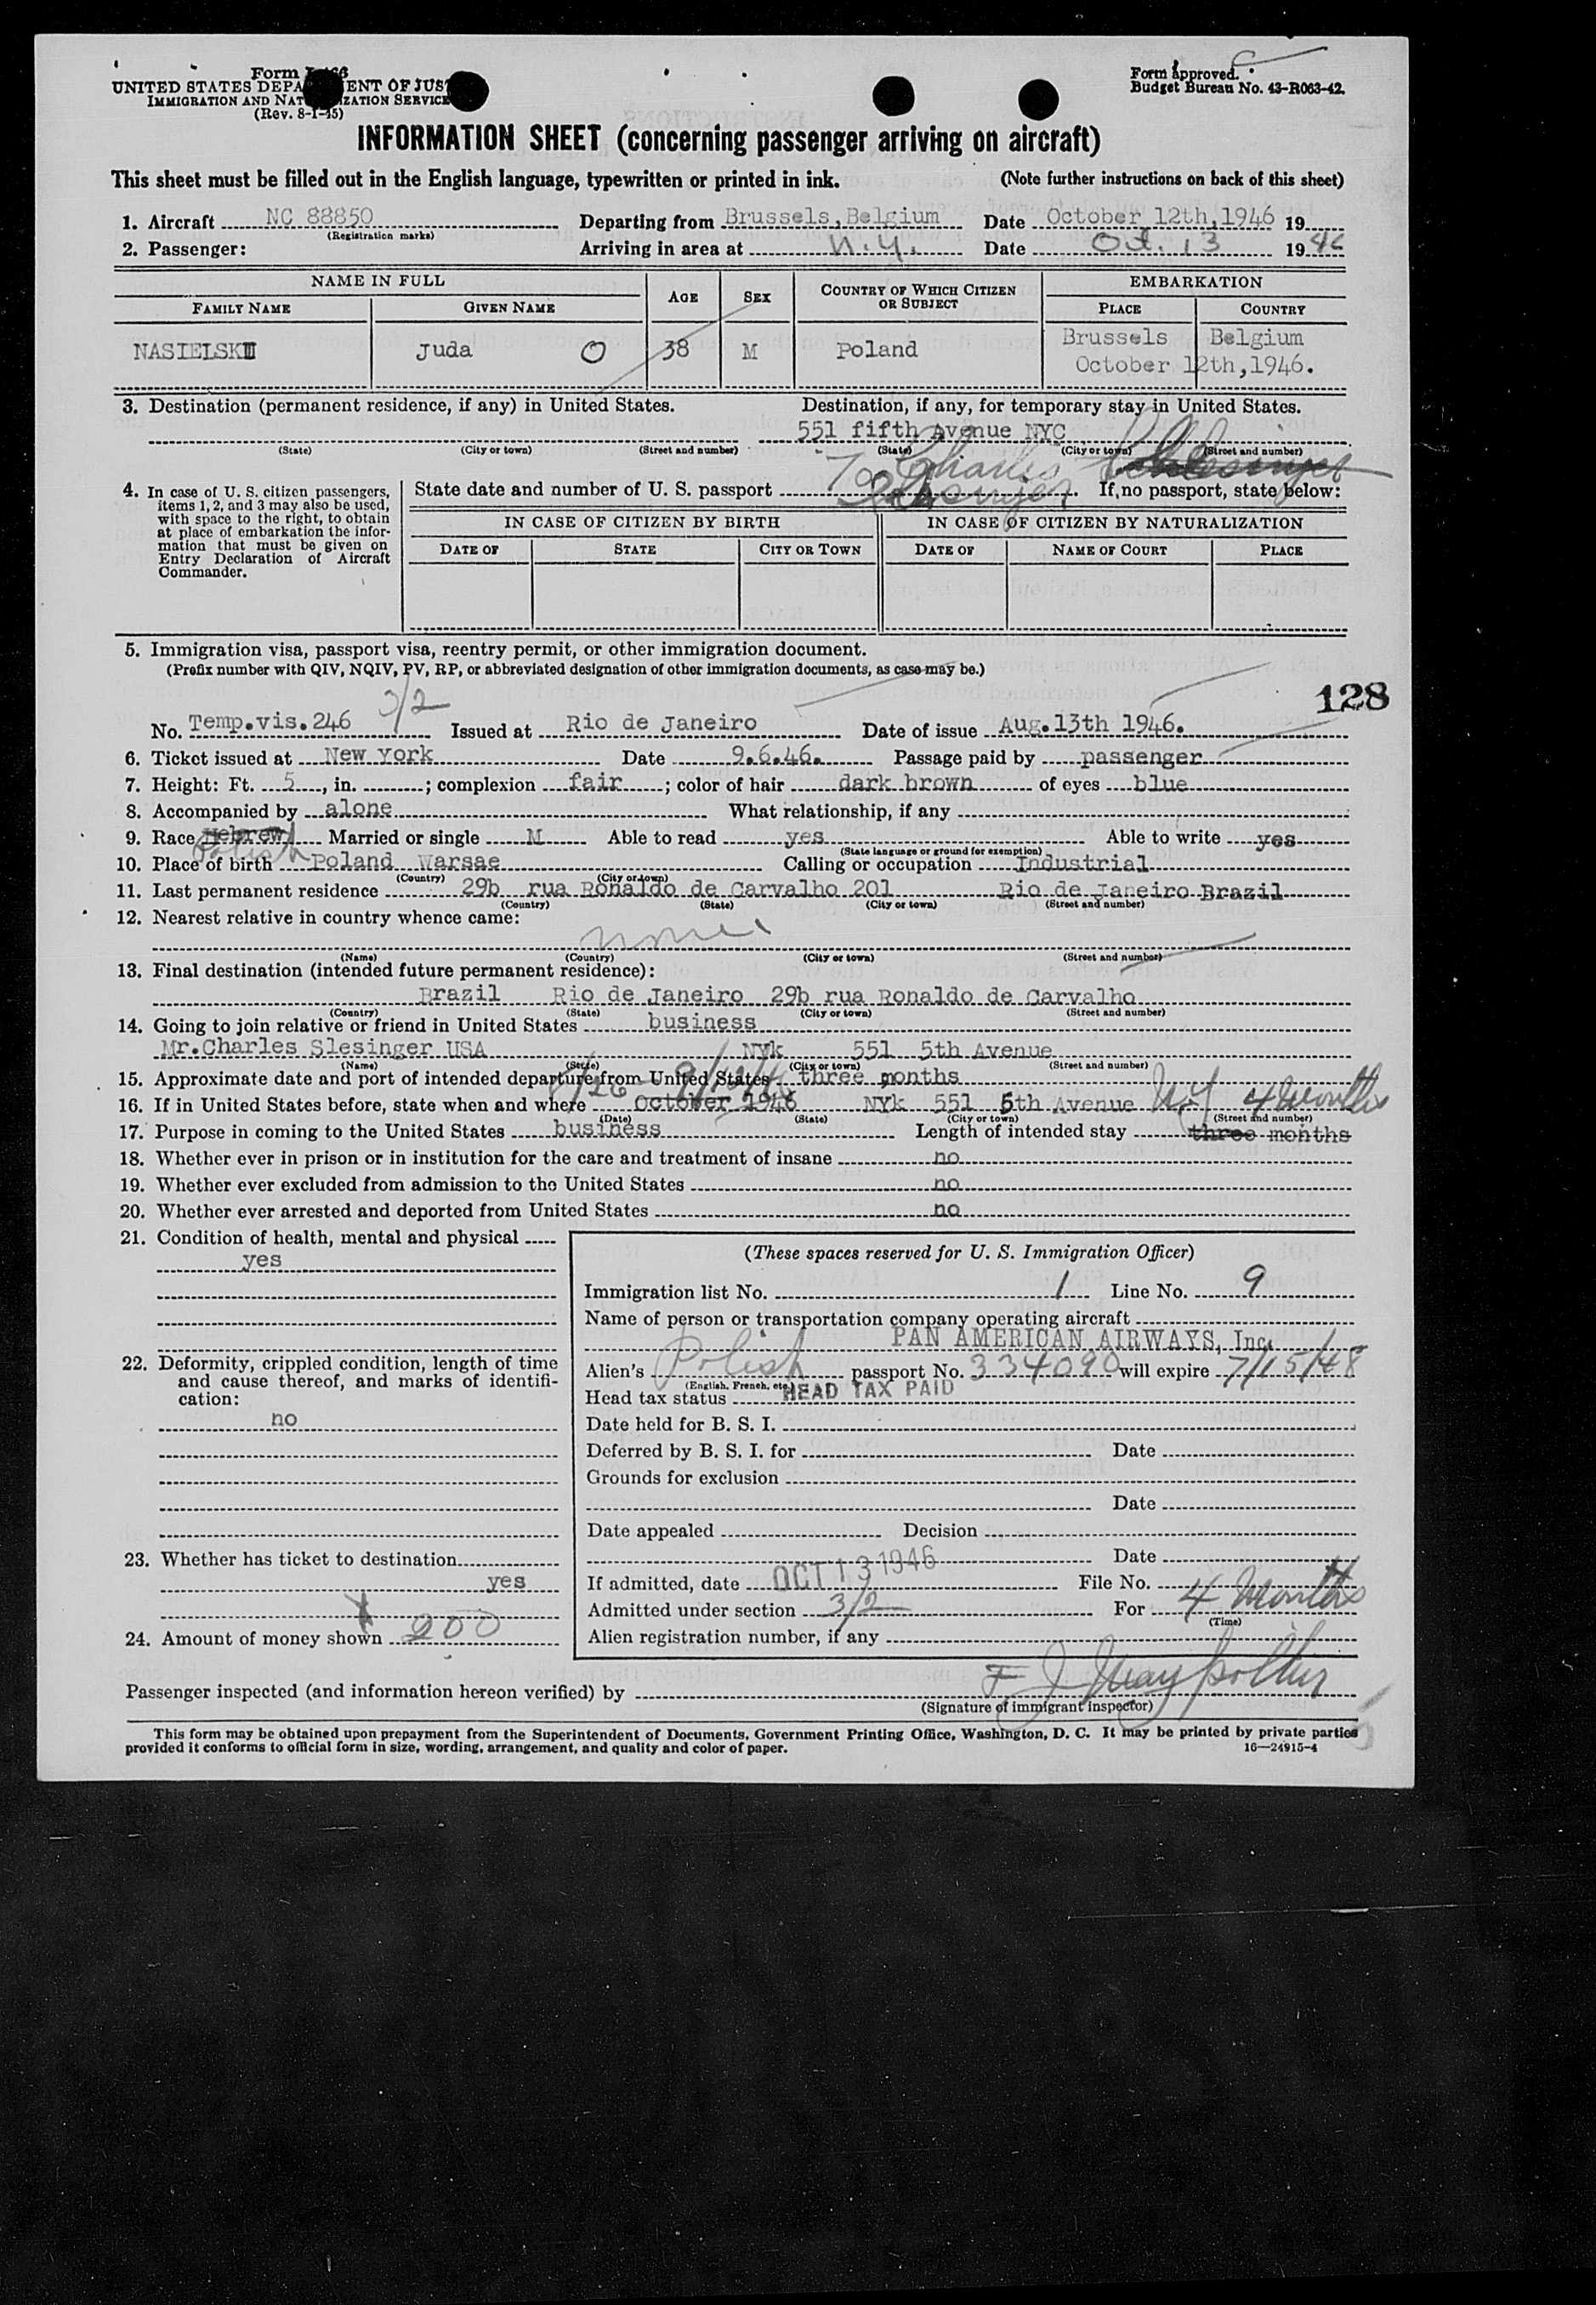 Form
UNITED STATES DEPA ENT OF JUS
IMMIGRATION AND NAT IZATION SERVICE
(Rev. 8-1-45)
Form approved.
Budget Bureau No. 43-R063-42.
INFORMATION SHEET (concerning passenger arriving on aircraft)
This sheet must be filled out in the English language, typewritten or printed in ink. (Note further instructions on back of this sheet)
1. Aircraft NC 88850 Departing from Brussels,Belgium Date October 12th,1946 19
(Registration marks)
2. Passenger: Arriving in area at N.Y. Date Oct. 13 1946
NAME IN FULL AGE SEX COUNTRY OF WHICH CITIZEN OR SUBJECT EMBARKATION
FAMILY NAME GIVEN NAME PLACE COUNTRY
NASIELSKI Juda O 38 M Poland Brussels Belgium
October 12th,1946.
3. Destination (permanent residence, if any) in United States. Destination, if any, for temporary stay in United States.
551 fifth Avenue NYC
(State) (City or town) (Street and number) (State) (City or town) (Street and number)
To Charles
Schlesinger
4. In case of U. S. citizen passengers, items 1, 2, and 3 may also be used, with space to the right, to obtain at place of embarkation the information that must be given on Entry Declaration of Aircraft Commander.
State date and number of U. S. passport If no passport, state below:
IN CASE OF CITIZEN BY BIRTH IN CASE OF CITIZEN BY NATURALIZATION
DATE OF STATE CITY OR TOWN DATE OF NAME OF COURT PLACE
5. Immigration visa, passport visa, reentry permit, or other immigration document.
(Prefix number with QIV, NQIV, PV, RP, or abbreviated designation of other immigration documents, as case may be.)
128
3/2
No. Temp.vis.246 Issued at Rio de Janeiro Date of issue Aug.13th 1946.
6. Ticket issued at New York Date 9.6.46. Passage paid by passenger
7. Height: Ft. 5, in. ; complexion fair; color of hair dark brown of eyes blue
8. Accompanied by alone What relationship, if any
9. Race Hebrew Married or single M Able to read yes Able to write yes
(State language or ground for exemption)
Polish
10. Place of birth Poland Warsae Calling or occupation Industrial
(Country) (City or town)
11. Last permanent residence 29b rua Ronaldo de Carvalho 201 Rio de Janeiro Brazil
(Country) (State) (City or town) (Street and number)
12. Nearest relative in country whence came:
none
(Name) (Country) (City or town) (Street and number)
13. Final destination (intended future permanent residence):
Brazil Rio de Janeiro 29b rua Ronaldo de Carvalho
(Country) (State) (City or town) (Street and number)
14. Going to join relative or friend in United States business
Mr.Charles Slesinger USA NYk 551 5th Avenue
(Name) (State) (City or town) (Street and number)
15. Approximate date and port of intended departure from United States three months
16. If in United States before, state when and where October 1946 NYk 551 5th Avenue N.Y 4 Months
(Date) (State) (City or town) (Street and number)
17. Purpose in coming to the United States business Length of intended stay three months
18. Whether ever in prison or in institution for the care and treatment of insane no
19. Whether ever excluded from admission to the United States no
20. Whether ever arrested and deported from United States no
21. Condition of health, mental and physical
yes
22. Deformity, crippled condition, length of time and cause thereof, and marks of identification:
no
23. Whether has ticket to destination
yes
24. Amount of money shown 200
(These spaces reserved for U. S. Immigration Officer)
Immigration list No. 1 Line No. 9
Name of person or transportation company operating aircraft
PAN AMERICAN AIRWAYS, Inc.
Alien's Polish passport No. 334090 will expire 7/15/48
(English, French, etc.)
Head tax status HEAD TAX PAID
Date held for B. S. I.
Deferred by B. S. I. for Date
Grounds for exclusion
Date
Date appealed Decision
Date
If admitted, date OCT 13 1946 File No.
Admitted under section 3/2 For 4 Months
(Time)
Alien registration number, if any
Passenger inspected (and information hereon verified) by
(Signature of immigrant inspector)
This form may be obtained upon prepayment from the Superintendent of Documents, Government Printing Office, Washington, D. C. It may be printed by private parties
provided it conforms to official form in size, wording, arrangement, and quality and color of paper. 16—24915-4